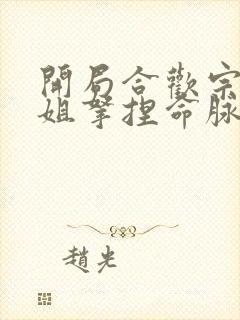 開局合歡宗
姐拏捏命脉
趙光